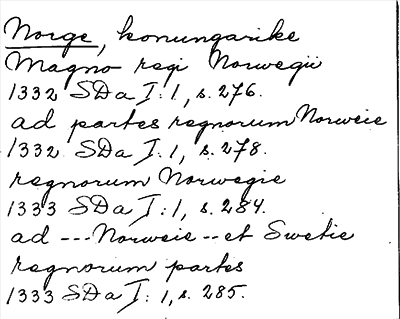 Norge, konungarike
Magno regi Norwegii
1332 SDa I:1, s. 276.
ad partes regnorum Norweie
1332 SDa I:1, s. 278.
regnorum Norwegie
1333 SDa I:1, s. 284.
ad --- Norweie -- et Swetie
regnorum partes
1333 SDa I:1, s. 285.